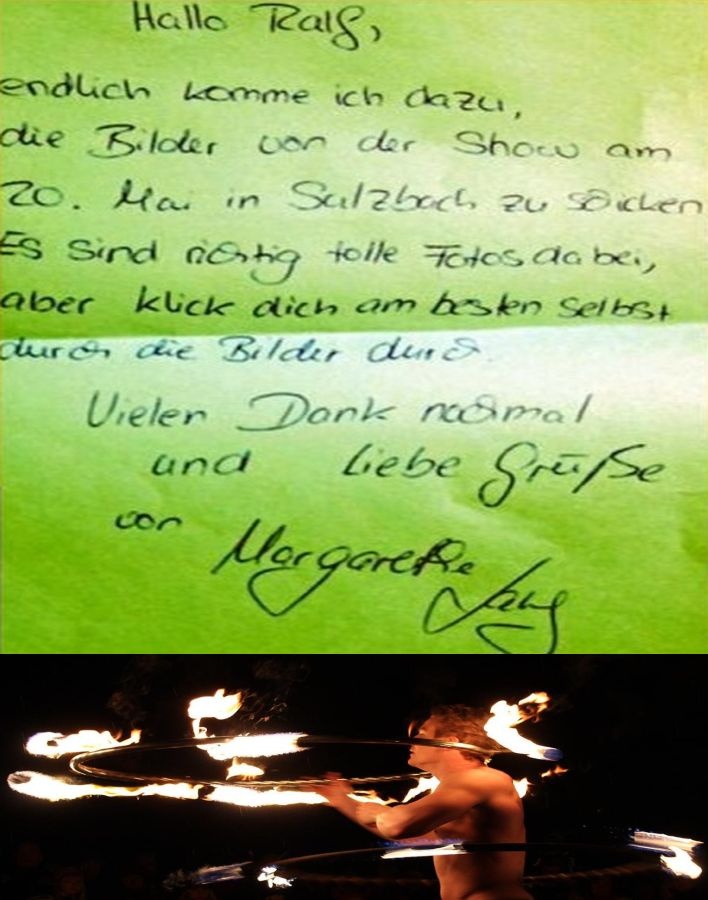 Hallo Ralf,
endlich komme ich dazu,
die Bilder von der Show am
20. Mai in Sulzbach zu schicken
Es sind richtig tolle Fotos dabei,
aber klick dich am besten selbst
durch die Bilder durch.
Vielen Dank nochmal
und liebe Grüße
von Margarethe
Jang